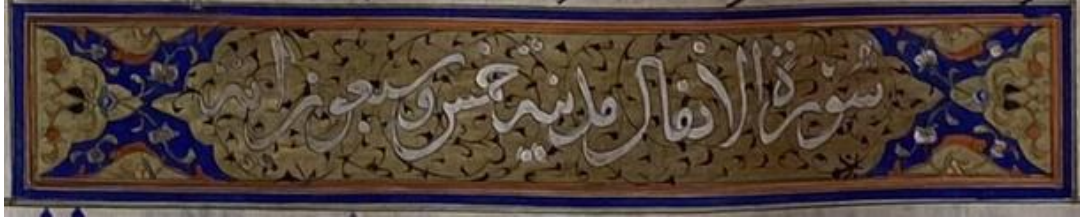 سورة الانفال مدنية خمس وسبعون اية